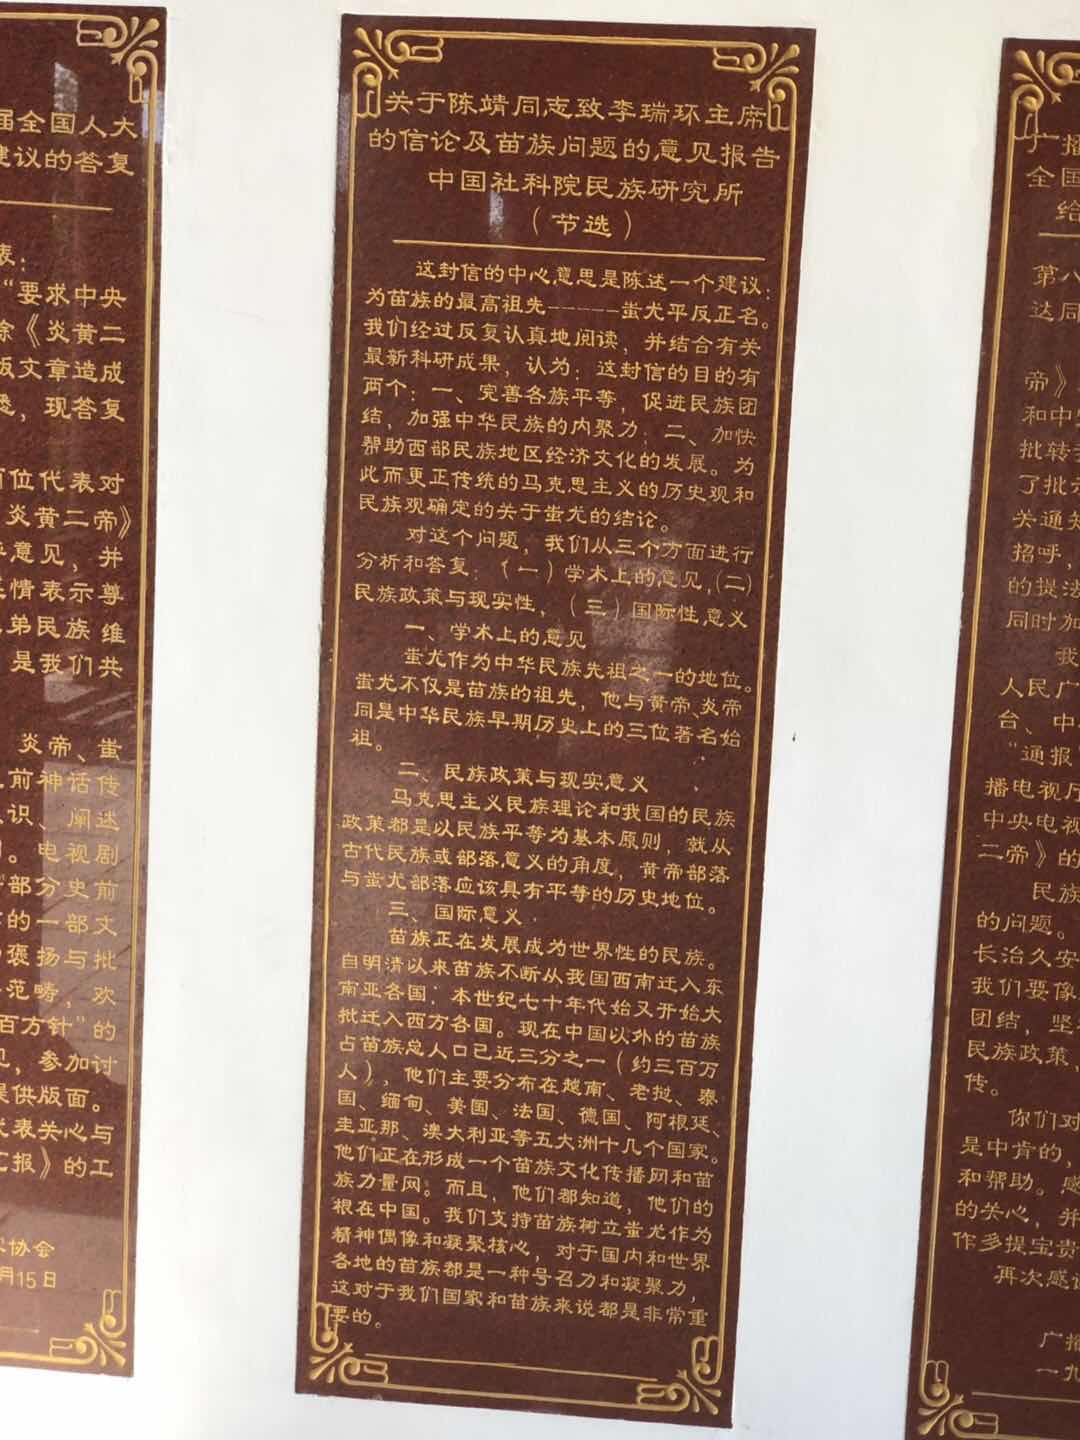 届全国人大
建议的答复
表：
“要求中央
除《炎黄二
版文章造成
悉，现答复
百位代表对
炎黄二帝》
意见，并
情表示尊
弟民族维
是我们共
炎帝、蚩
前神话传
识、阐述
。电视剧
部分史前
的一部文
褒扬与批
范畴，欢
百方针”的
见，参加讨
提供版面。
代表关心与
汇报》的工
协会
月15日
关于陈靖同志致李瑞环主席
的信论及苗族问题的意见报告
中国社科院民族研究所
（节选）
这封信的中心意思是陈述一个建议：
为苗族的最高祖先------蚩尤平反正名。
我们经过反复认真地阅读，并结合有关
最新科研成果，认为：这封信的目的有
两个：一、完善各族平等，促进民族团
结，加强中华民族的内聚力；二、加快
帮助西部民族地区经济文化的发展。为
此而更正传统的马克思主义的历史观和
民族观确定的关于蚩尤的结论。
对这个问题，我们从三个方面进行
分析和答复：（一）学术上的意见，（二）
民族政策与现实性，（三）国际性意义
一、学术上的意见
蚩尤作为中华民族先祖之一的地位。
蚩尤不仅是苗族的祖先，他与黄帝、炎帝
同是中华民族早期历史上的三位著名始
祖。
二、民族政策与现实意义
马克思主义民族理论和我国的民族
政策都是以民族平等为基本原则，就从
古代民族或部落意义的角度，黄帝部落
与蚩尤部落应该具有平等的历史地位。
三、国际意义
苗族正在发展成为世界性的民族。
自明清以来苗族不断从我国西南迁入东
南亚各国；本世纪七十年代始又开始大
批迁入西方各国。现在中国以外的苗族
占苗族总人口已近三分之一（约三百万
人），他们主要分布在越南、老挝、泰
国、缅甸、美国、法国、德国、阿根廷、
圭亚那、澳大利亚等五大洲十几个国家。
他们正在形成一个苗族文化传播网和苗
族力量网。而且，他们都知道，他们的
根在中国。我们支持苗族树立蚩尤作为
精神偶像和凝聚核心，对于国内和世界
各地的苗族都是一种号召力和凝聚力，
这对于我们国家和苗族来说都是非常重
要的。
广播
全国
给
第八
达同
帝》
和中
批转
了批示
关通知
招呼，
的提法
同时加
我
人民广
台、中
“通报
播电视厅
中央电视
二帝》的
民族
的问题。
长治久安
我们要像
团结，坚
民族政策，
传。
你们对
是中肯的，
和帮助。感
的关心，并
作多提宝贵
再次感谢
广播
一九